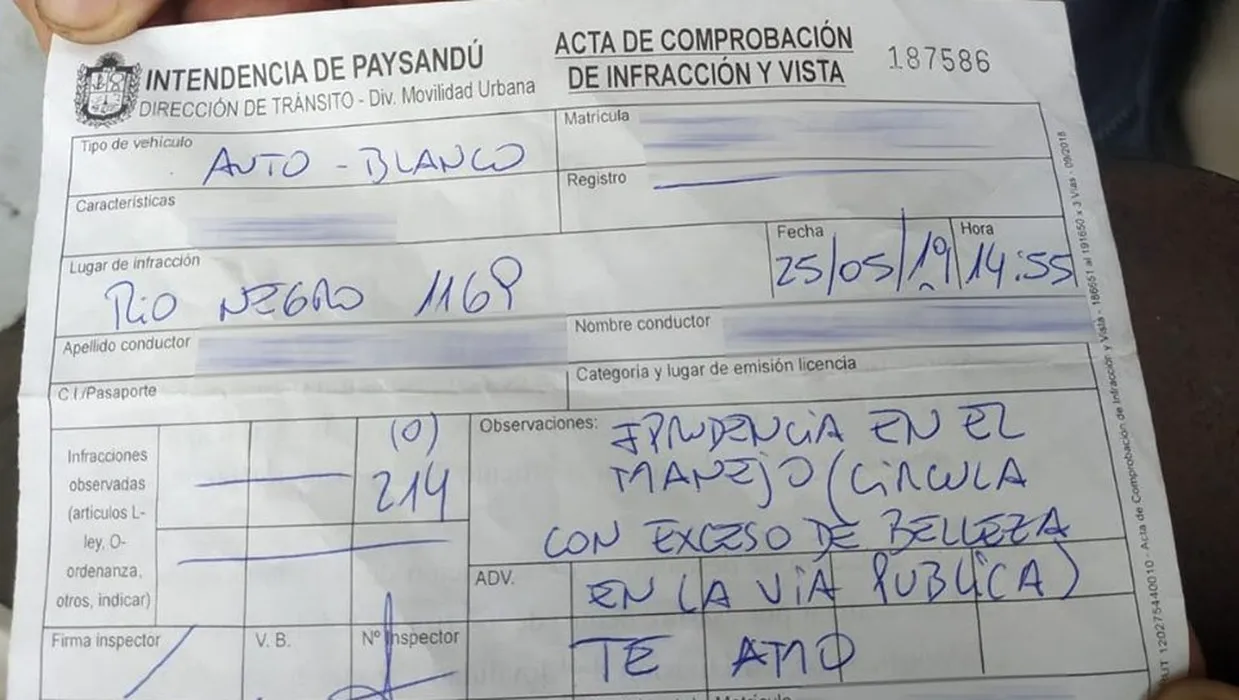 INTENDENCIA DE PAYSANDÚ
DIRECCIÓN DE TRÁNSITO - Div. Movilidad Urbana
ACTA DE COMPROBACIÓN
DE INFRACCIÓN Y VISTA
187586
Tipo de vehículo
AUTO - BLANCO
Matrícula
Características
Registro
Lugar de infracción
RIO NEGRO 1169
Fecha
25/05/19
Hora
14:55
Apellido conductor
Nombre conductor
C.I./Pasaporte
Categoria y lugar de emisión licencia
Infracciones
observadas
(articulos L-
ley, O-
ordenanza,
otros, indicar)
(O)
214
Observaciones:
IPRUDENCIA EN EL
MANEJO (CIRCULA
CON EXCESO DE BELLEZA
ADV.
EN LA VIA PUBLICA)
TE AMO
Firma inspector
V. B.
Nº Inspector
RUT 120275440010 - Acta de Comprobación de Infracción y Vista - 186651 al 191650 x 3 Vías - 09/2018